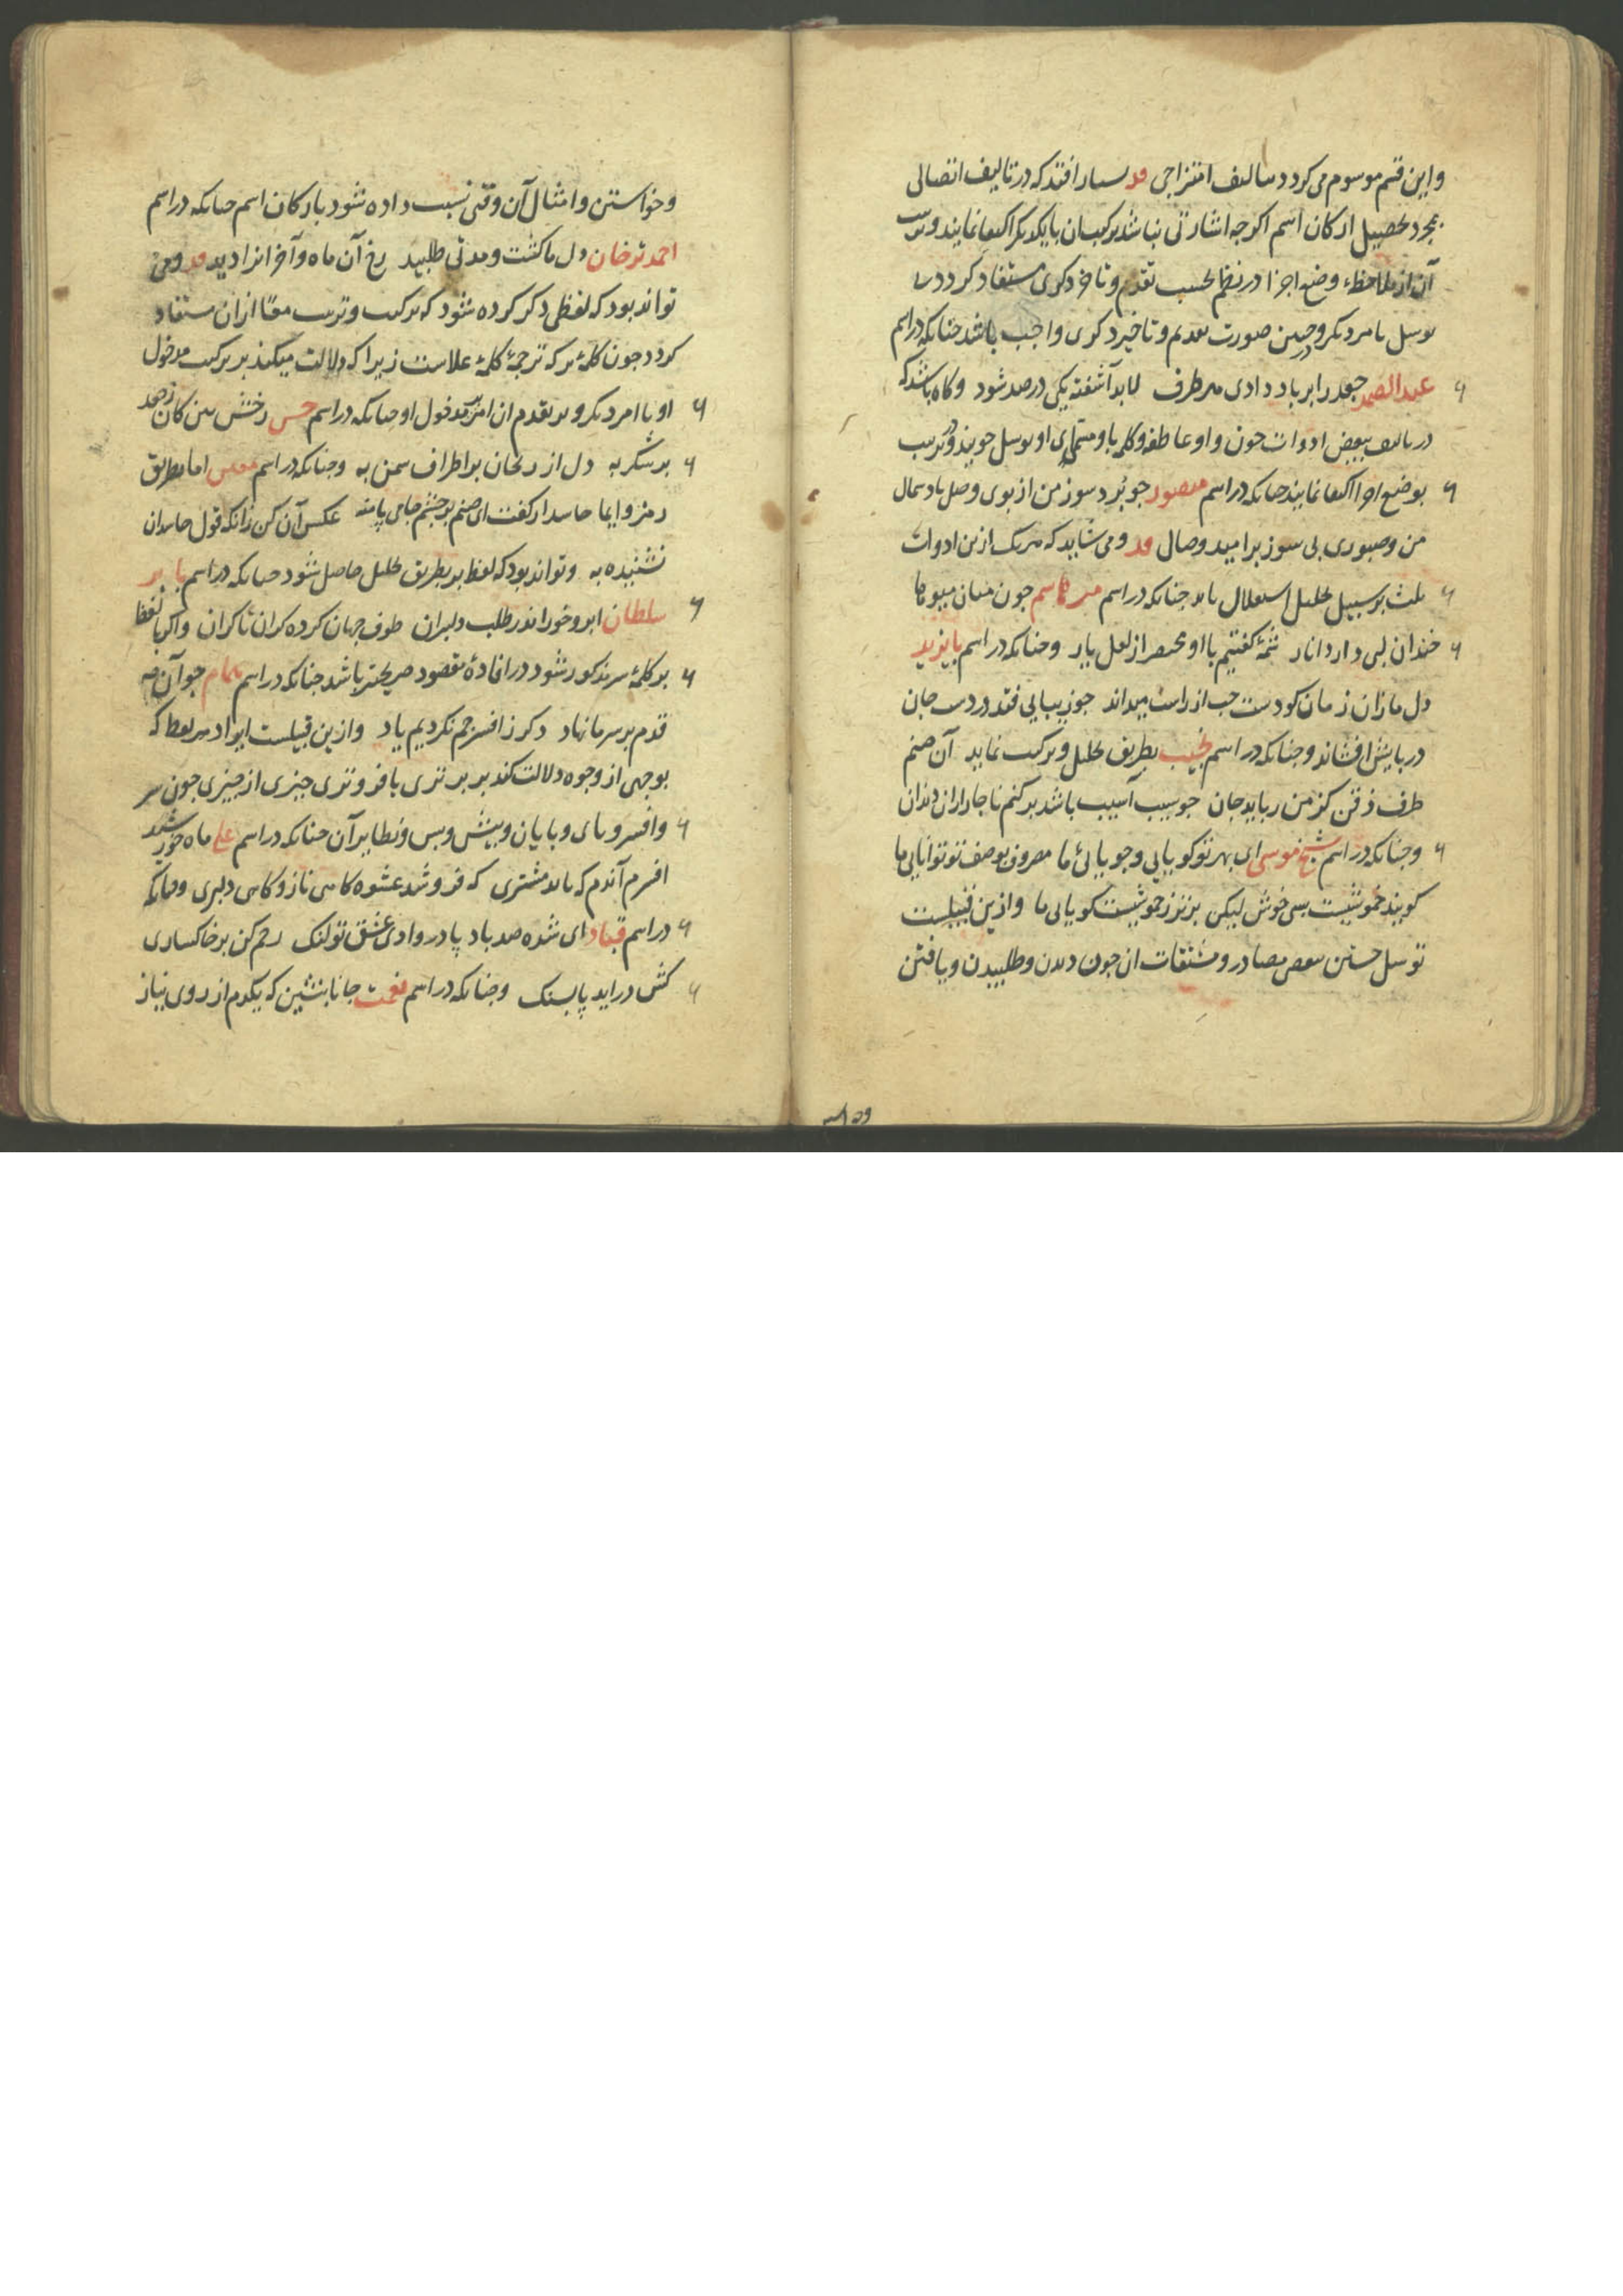 و این قسم موسوم می کردد بتالیف امتزاجی و بسیار افتد که در تالیف اتصالی
بمجرد تحصیل ارکان اسم اکرچه اشارتی نباشد بترکیب ان بایکدیکر اکتفا نمایند و ترتیب
آن از ملاحظهٔ وضع اجزا در نظم بحسب تقدم و تاخر ذکری مستفاد کردد بی
توسل بامر دیکر و درین صورت تقدیم و تاخیر ذکری واجب باشد چنانکه در اسم
عبد الصمد جعد را بر باد دادی هر طرف لابد آشفته یکی در صد شود و کاه باشد که
در تالیف ببعض ادوات چون واو عاطفه و کلمه با و او توسل جویند و در ترتیب
بوضع اجزا اکتفا نمایند چنانکه در اسم منصور چو برد سوز من از بوی وصل باد شمال
من و صبوری بی سوز بر امید وصال و می شاید که هر یک ازین ادوات
ثلث بر سبیل تحلیل استعلال یابد چنانکه در اسم میر قاسم چون میان
خندان لبی دارد انار شمهٔ کفتیم با او مختصر از لعل یار و چنانکه در اسم بایزید
دل ما زان زمان کو دست چپ از راست میداند چو زیبایی فتد در دست جان
در پایش افشاند و چنانکه در اسم نجیب بطریق تحلیل و ترکیب نماید آن صنم
طرف ذقن کز من رباید جان چو سیب آسیب باشد بر کنم ناچار ازان دندان
و چنانکه در اسم شیخ موسی ای بهر تو کویایی و جویائی ما مصروف بوصف تو توانایی ما
کویند خموشیست بسی خوش لیکن بزنرز خموشیست کویایی ما و ازین قبیلست
توسل جستن ببعض مصادر و مشتقات ان چون دیدن و طلبیدن و یافتن
و خواستن و امثال آن وقتی نسبت داده شود بارکان اسم چنانکه در اسم
احمد ترخان دل ما کشت و مدتی طلبید رخ آن ماه و آخر انرا دید و می
تواند بود که لفظی ذکر کرده شود که ترکیب و ترتیب معًا ازان مستفاد
کردد چون کلمهٔ بر که ترجمهٔ کلمهٔ علاست زیرا که دلالت میکند بر ترکیب مدخول
او با امر دیکر و بر تقدم ان امر بر مدخول او چنانکه در اسم حسن رخش بین کان زهد
بر شکر به دل از ریحان بر اطراف سمن به و چنانکه در اسم اما بطریق
رمز و ایما حاسد ار کفت ای صنم بر چشم جای پا منه عکس آن کن زانکه قول حاسدان
نشنیده به و تواند بود که لفظ بر بطریق تحلیل حاصل شود چنانکه در اسم بابر
سلطان ابر و خور اندر طلب دلبران طوف جهان کرده کران تا کران و اکر با لفظ
بر کلمهٔ سر مذکور شود در افادهٔ مقصود صریحتر باشد چنانکه در اسم همام چو آن مه
قدم بر سر ما نهاد دکر ز افسر جم نکردیم یاد و ازین قبیلست ایراد هر لفظ که
بوجهی از وجوه دلالت کند بر برتری یا فروتری چیزی از چیزی چون سر
و افسر و پای و پایان و پیش و پس و نظایر آن چنانکه در اسم علی ماه خورشید
افسرم آندم که یابد مشتری که فروشد عشوه کاهی ناز و کاهی دلبری و چنانکه
در اسم قباد ای شده صد باد پا در وادی عشق تو لنک رحم کن بر خاکساری
کش دراید پا بسنک و چنانکه در اسم نعمت جانا بنشین که یکدم از روی نیاز